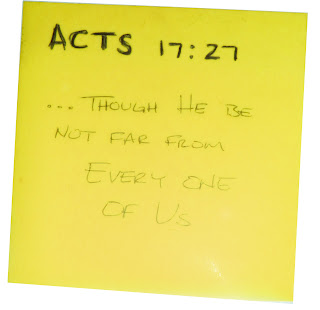 ACTS 17:27
... THOUGH HE BE
NOT FAR FROM
EVERY ONE
OF US